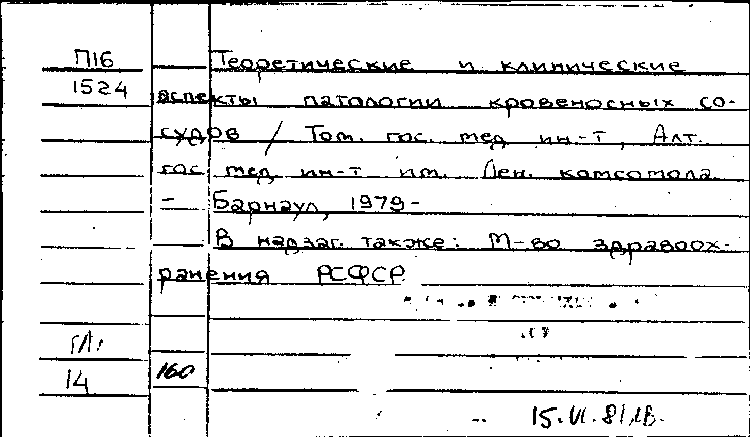 П16 Теоретические и клинические
1524 аспекты патологии кровеносных со-
судов / Том. гос. мед. ин-т, Алт.
гос. мед. ин-т им. Лен. комсомола.
- Барнаул, 1979-
В надзаг. также: М-во здравоох-
ранения РСФСР
14 160
15.VI.81